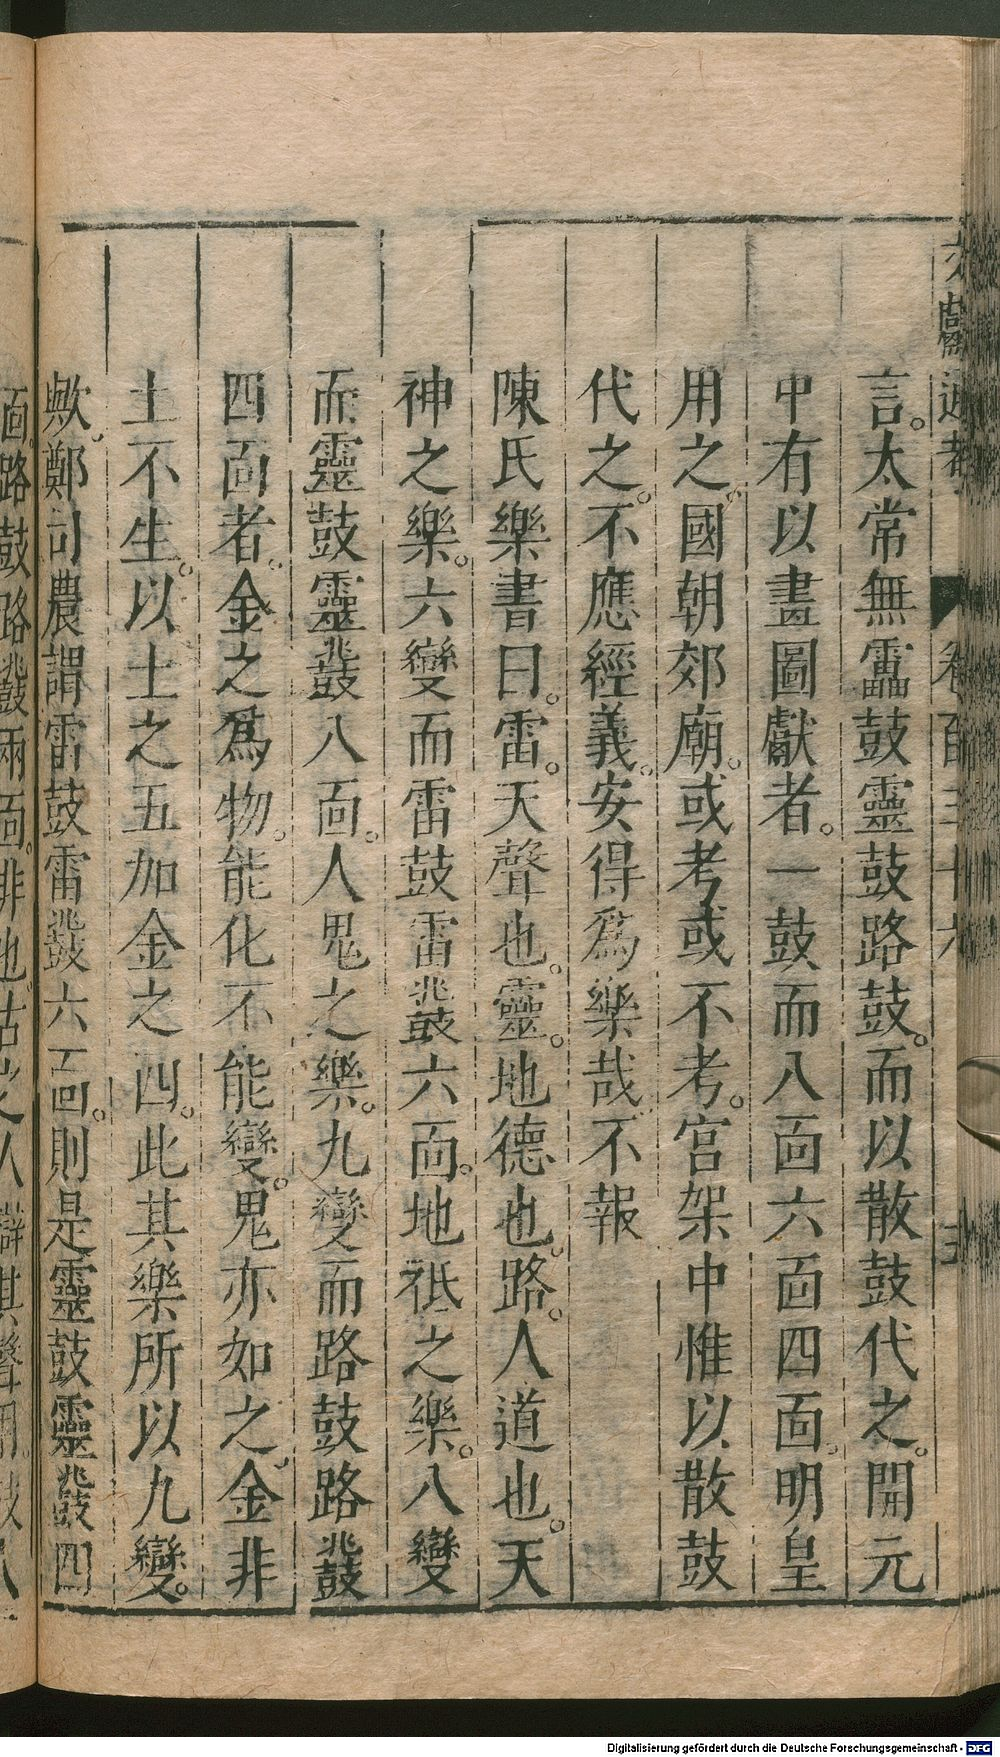 文獻通考 卷百三十六
言。太常無靁鼓靈鼓路鼓。而以散鼓代之。開元
中有以畫圖獻者。一鼓而八面六面四面。明皇
用之。國朝郊廟。或考或不考。宮架中惟以散鼓
代之。不應經義。安得爲樂哉不報
陳氏樂書曰。雷。天聲也。靈。地德也。路。人道也。天
神之樂。六變而雷鼓雷鼗六面。地祇之樂。八變
而靈鼓靈鼗八面。人鬼之樂。九變而路鼓路鼗
四面者。金之爲物。能化不能變。鬼亦如之。金非
土不生。以土之五加金之四。此其樂所以九變。
歟。鄭司農謂雷鼓雷鼗六面。則是靈鼓靈鼗四
面。路鼓路鼗兩面。非也。古之人辯其聲用。鼓人
Digitalisierung gefördert durch die Deutsche Forschungsgemeinschaft - DFG